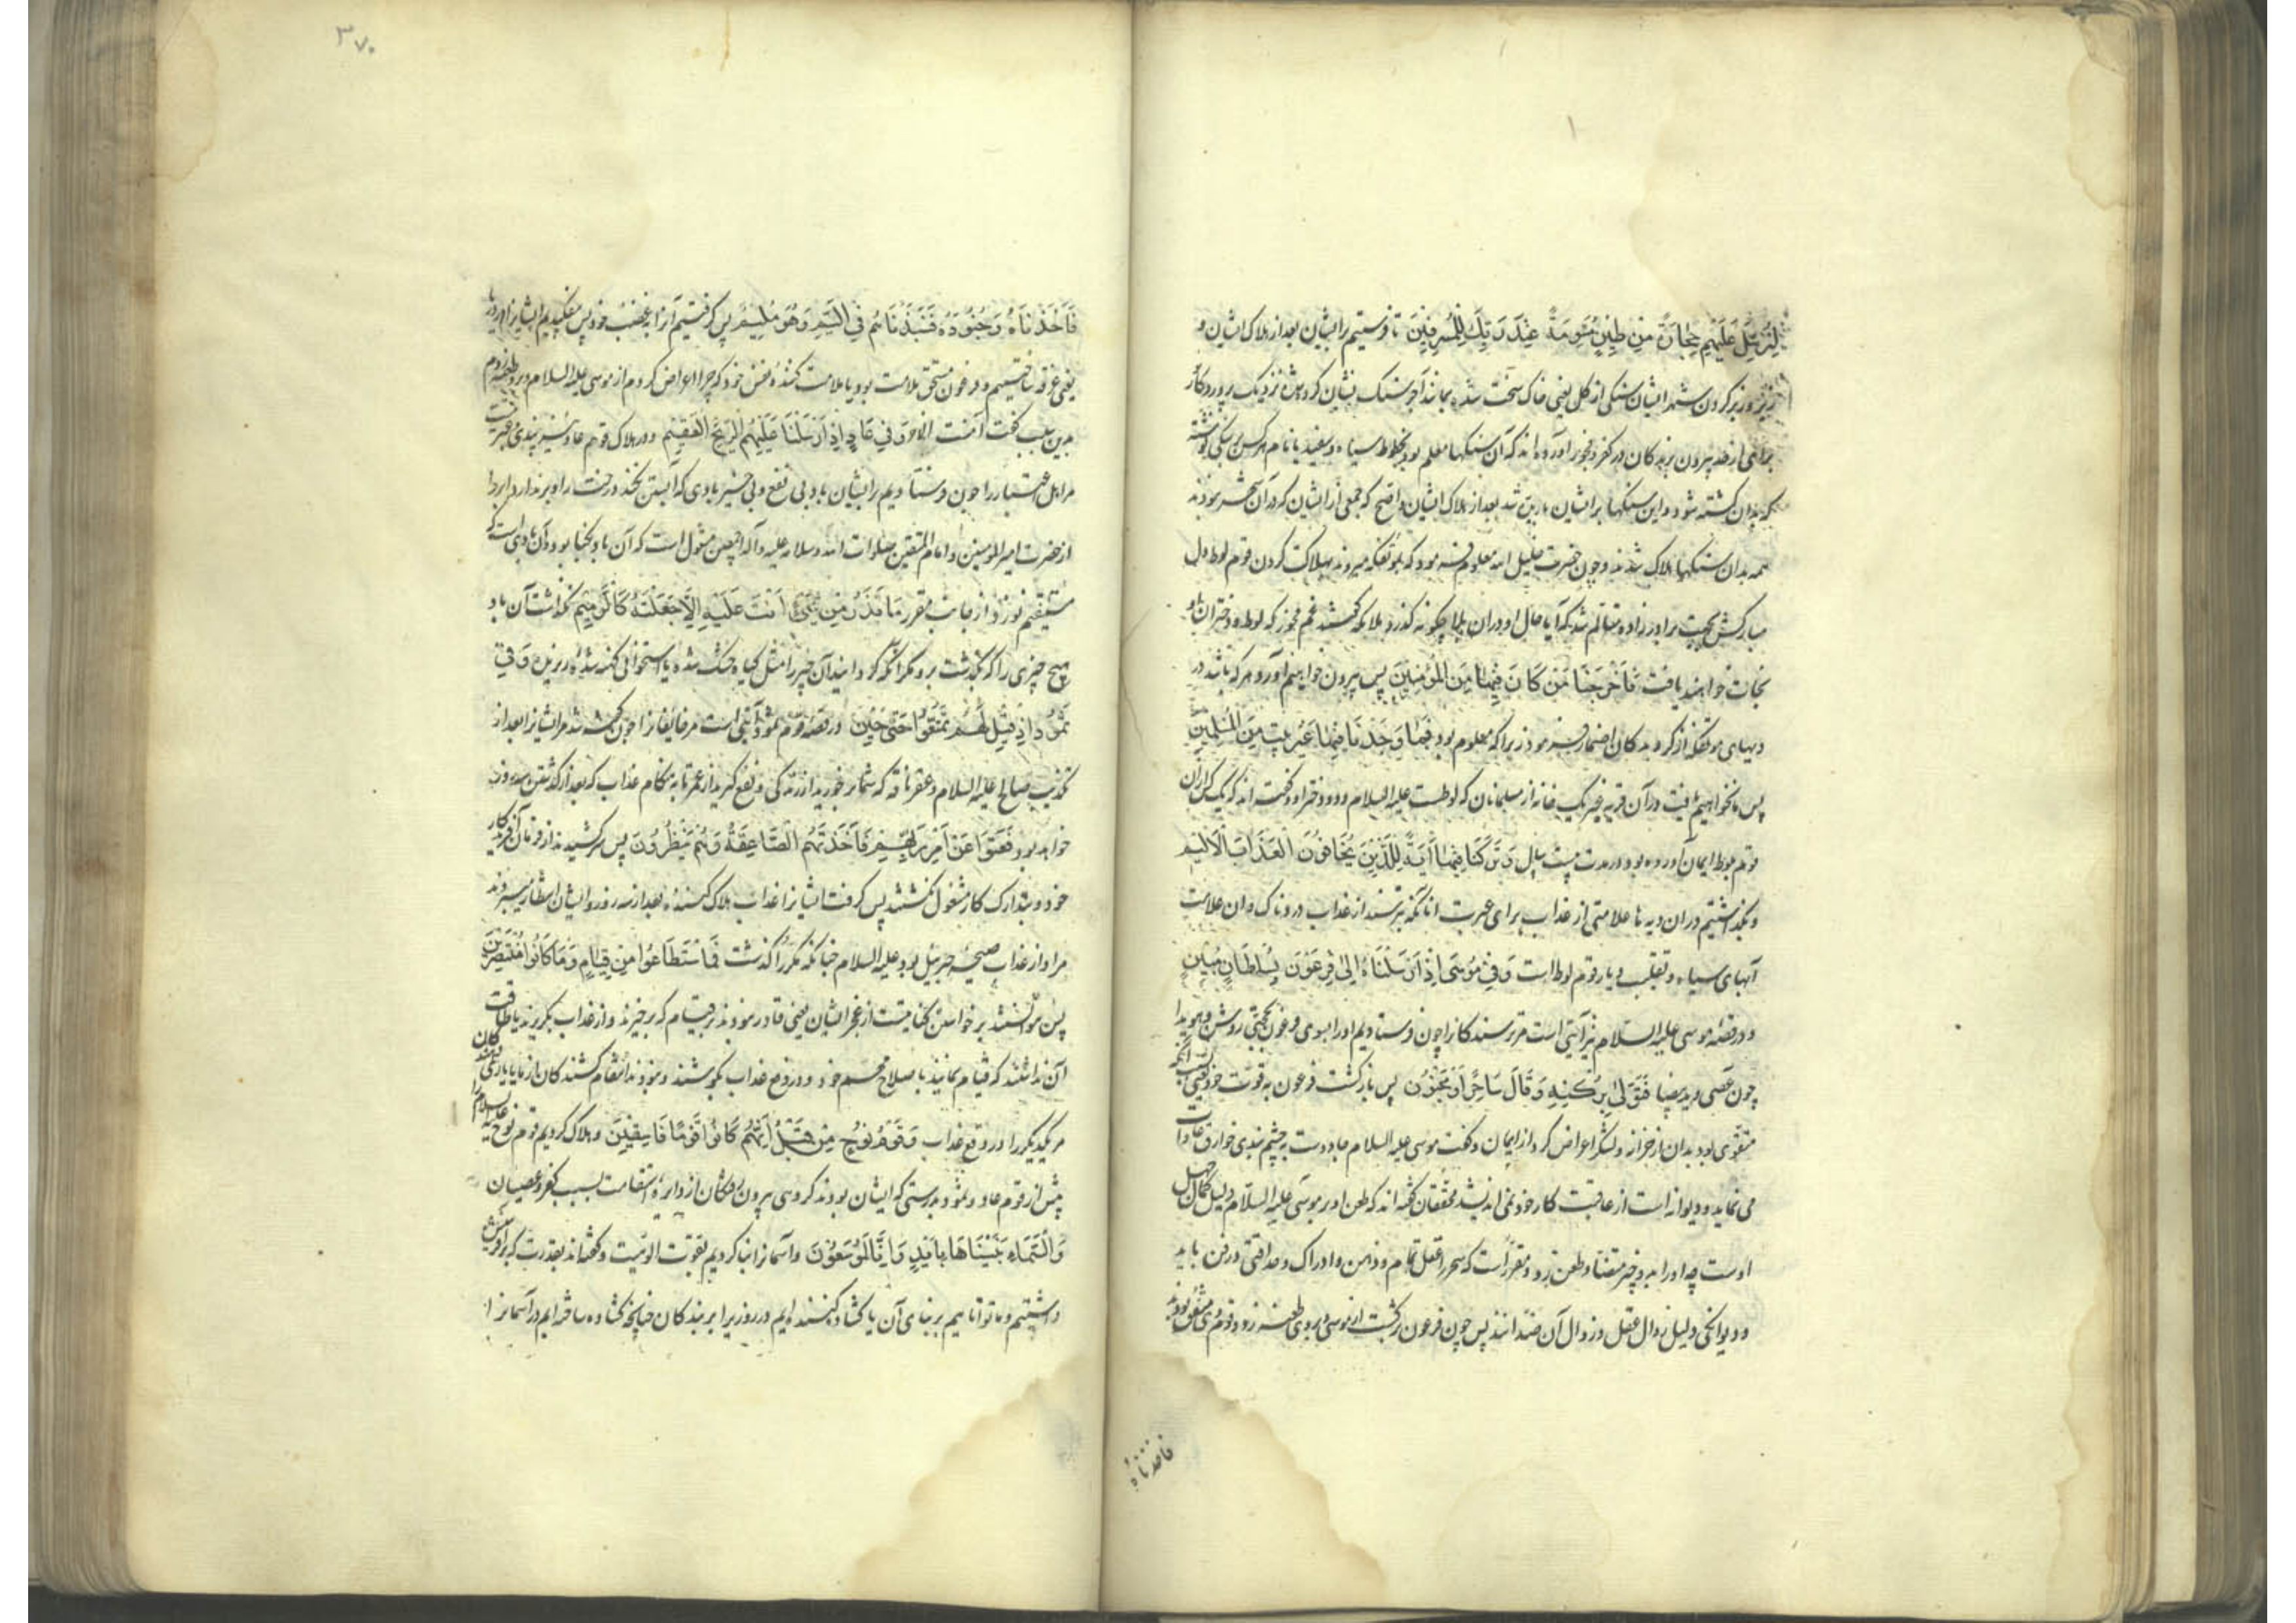 لِنُرْسِلَ عَلَيْهِمْ حِجَارَةً مِن طِينٍ مُسَوَّمَةً عِنْدَ رَبِّكَ لِلْمُسْرِفِينَ تا فرستیم بر ایشان بعد از هلاک ایشان و
زیر و زبر کردن شهر ایشان سنکی از کل یعنی خاک سخت شده بمانند آجر سنک نشان کرده شده نزدیک پروردکار
برای از حد بیرون برندکان در کفر و فجور آورده اند که آن سنکها معلم بود بخطوط سیاه و سفید یا نام هر کس بر سنکی نوشته
که بدان کشته شود و این سنکها بر ایشان باریده شد بعد از هلاک ایشان و اصح که جمعی از ایشان که در آن شهر نبودند
همه بدان سنکها هلاک شدند و چون حضرت خلیل الله معلوم فرمود که بمؤتفکه میروند بهلاکت کردن قوم لوط دل
مبارکش بجهت برادرزاده متالم شد که آیا حال او در آن بلا چکونه کذرد ملائکه کفتند غم مخور که لوط و دختران او
نجات خواهند یافت فَأَخْرَجْنَا مَنْ كَانَ فِيهَا مِنَ الْمُؤْمِنِينَ پس بیرون خواهیم آورد هر که باشد در
دیهای مؤتفکه از کرویدکان اضمار فرمود زیرا که معلوم بود فَمَا وَجَدْنَا فِيهَا غَيْرَ بَيْتٍ مِنَ الْمُسْلِمِينَ
پس ما نخواهیم یافت در آن قریه غیر یک خانه از مسلمانان که لوطست علیه السلام و دو دختر او و کفته اند که یک کس از آن
قوم بلوط ایمان آورده بود در مدت بیست سال وَتَرَكْنَا فِيهَا آيَةً لِلَّذِينَ يَخَافُونَ الْعَذَابَ الْأَلِيمَ
و بکذاشتیم در آن دیه ها علامتی از عذاب برای عبرت انانکه بترسند از عذاب دردناک و ان علامت
آبهای سیاه و تقلب دیار قوم لوط است وَفِي مُوسَى إِذْ أَرْسَلْنَاهُ إِلَى فِرْعَوْنَ بِسُلْطَانٍ مُبِينٍ
و در قصه موسی علیه السلام نیز آیتی است مر ترسندکانرا چون فرستادیم او را بسوی فرعون بحجتی روشن و هویدا
چون عصی و ید بیضا فَتَوَلَّى بِرُكْنِهِ وَقَالَ سَاحِرٌ أَوْ مَجْنُونٌ پس بازکشت فرعون به قوت خود یعنی
متقوی بود بدان از خزانه و لشکر اعراض کرد از ایمان و کفت موسی علیه السلام جادوست به چشم بندی خوارق عادات
می نماید و دیوانه است از عاقبت کار خود نمی اندیشد محققان کفته اند که طعن او بر موسی علیه السلام دلیل کمال جهل
اوست چه او را بدو چیز متضاد طعن زد و مقرر است که سحر را عقل تمام و ذهن و ادراک و حذاقتی در فن باید
و دیوانکی دلیل زوال عقل و زوال آن ضدانند پس چون فرعون برکشت از موسی و بر وی طعنه زد و قوم وی متفق بودند
فاخذناه
۳۷۰
فَأَخَذْنَاهُ وَجُنُودَهُ فَنَبَذْنَاهُمْ فِي الْيَمِّ وَهُوَ مُلِيمٌ پس کرفتیم او را بغضب خود پس بیفکندیم ایشانرا در دریا
یعنی غرقه ساختیم و فرعون مستحق ملامت بود یا ملامت کننده نفس خود که چرا اعراض کردم از موسی علیه السلام و برو طعنه زدم
بدین سبب کفت آمنت الا وَفِي عَادٍ إِذْ أَرْسَلْنَا عَلَيْهِمُ الرِّيحَ الْعَقِيمَ و در هلاک قوم عاد نیز پندی و عبرتیست
مر اهل اعتبار را چون فرستادیم بر ایشان باد بی نفع و بی خیر بادی که آبستن نکند درخت را و بر ندارد ابر را
از حضرت امیر المؤمنین و امام المتقین صلوات الله وسلامه علیه وآله اجمعین منقول است که آن باد نکبا بود و آن بادی است که
مستقیم نوزد از جانب مقرر مَا تَذَرُ مِنْ شَيْءٍ أَتَتْ عَلَيْهِ إِلَّا جَعَلَتْهُ كَالرَّمِيمِ نکذاشت آن باد
هیچ چیزی را که بکذشت برو مکر آنکه کردانید آن چیز را مثل کیاه خشک شده یا استخوانی کهنه شده ریزیده وَفِي
ثَمُودَ إِذْ قِيلَ لَهُمْ تَمَتَّعُوا حَتَّى حِينٍ در قصه قوم ثمود آیتی است مر خایفانرا چون کفته شد مر ایشانرا بعد از
تکذیب صالح علیه السلام و عقر ناقه که شما برخورید از زندکی و نفع کیرید از عمر تا به هنکام عذاب که بعد از کذشتن سه روز
خواهد بود فَعَتَوْا عَنْ أَمْرِ رَبِّهِمْ فَأَخَذَتْهُمُ الصَّاعِقَةُ وَهُمْ يَنْظُرُونَ پس سر کشیدند از فرمان آفریدکار
خود و بتدارک کار مشغول نکشتند پس کرفت ایشانرا عذاب هلاک کننده بعد از سه روز و ایشان انتظار میبردند
مراد از عذاب صیحه جبرییل بود علیه السلام چنانکه مکررا کذشت فَمَا اسْتَطَاعُوا مِنْ قِيَامٍ وَمَا كَانُوا مُنْتَصِرِينَ
پس نتوانستند برخواستن کنایتست از عجز ایشان یعنی قادر نبودند بر قیام که برخیزند و از عذاب بکریزند یا طاقت
آن نداشتند که قیام نمایند باصلاح مهم خود و در دفع عذاب بکوشند و نبودند انتقام کشندکان از ما یا یاری دهندکان
مر یکدیکر را در وقوع عذاب وَقَوْمَ نُوحٍ مِنْ قَبْلُ إِنَّهُمْ كَانُوا قَوْمًا فَاسِقِينَ و هلاک کردیم قوم نوح علیه السلام را
پیش از قوم عاد و ثمود بدرستی که ایشان بودند کروهی بیرون رفتکان از دایره استقامت بسبب کفر و عصیان
وَالسَّمَاءَ بَنَيْنَاهَا بِأَيْدٍ وَإِنَّا لَمُوسِعُونَ و آسمانرا بنا کردیم بقوت الوهیت و کفته اند بقدرت که بر آفرینش
داشتیم و ما تواناییم بر بنای آن یا کشاده کننده ایم در روزی را بر بندکان چنانچه کشاده ساخته ایم در آسمانرا